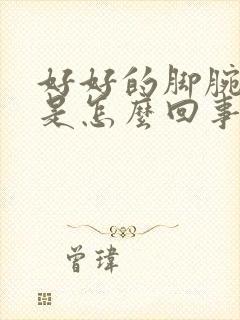 好好的脚腕
是怎麼回事
曾瑋